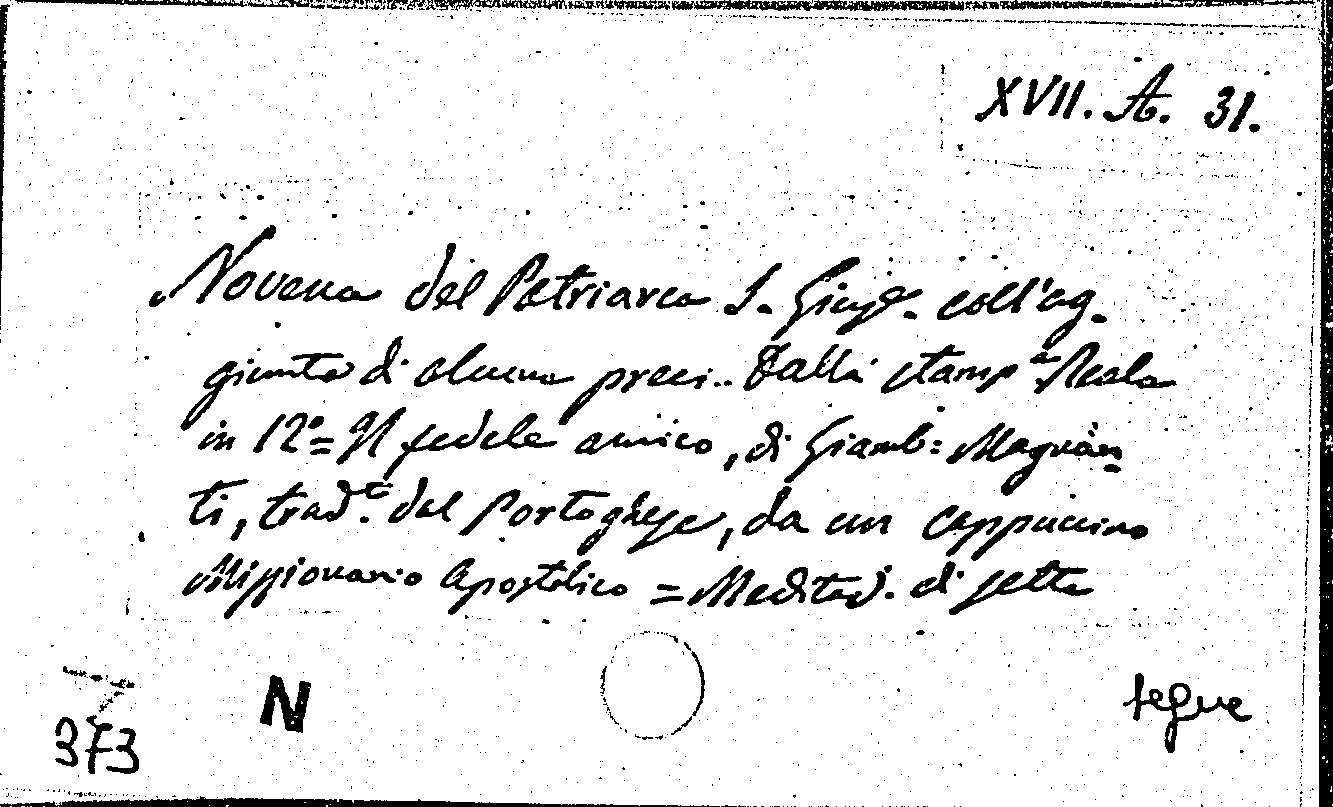 XVII. A. 31.
Novena del Patriarca S. Giuse. coll'ag-
giunta di alcune preci.. Dalla stampa Reale
in 12° = Il fedele amico, di Giamb: Magnan-
ti, trad.e dal Portoghese, da un Cappuccino
Missionario Apostolico = Meditaz. di sette
segue
N
373